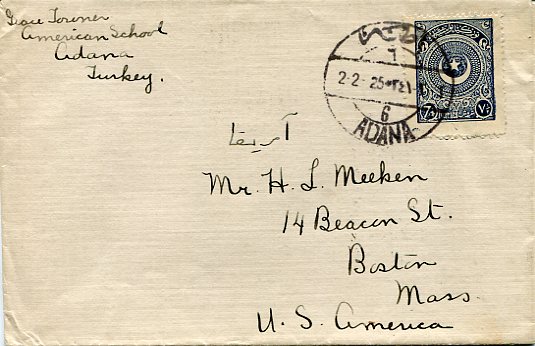 Grace Towner
American School
Adana
Turkey.
٦
2-2 25 ٣٤١
6
ADANA
7½
آمريقا
Mr. H. L. Meeken
14 Beacon St.
Boston
Mass.
U. S. America